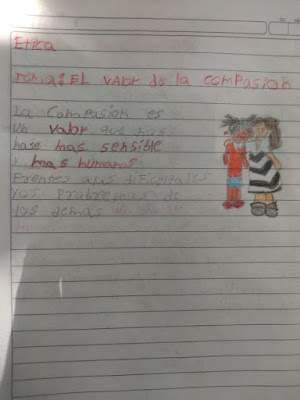 Etica
Tema: EL vaLor de la comPasion
La ComPasion es
un valor que nos
hase mas sensible
mas humanos
Frentez alas dificultades
Los Problemas de
Los demas